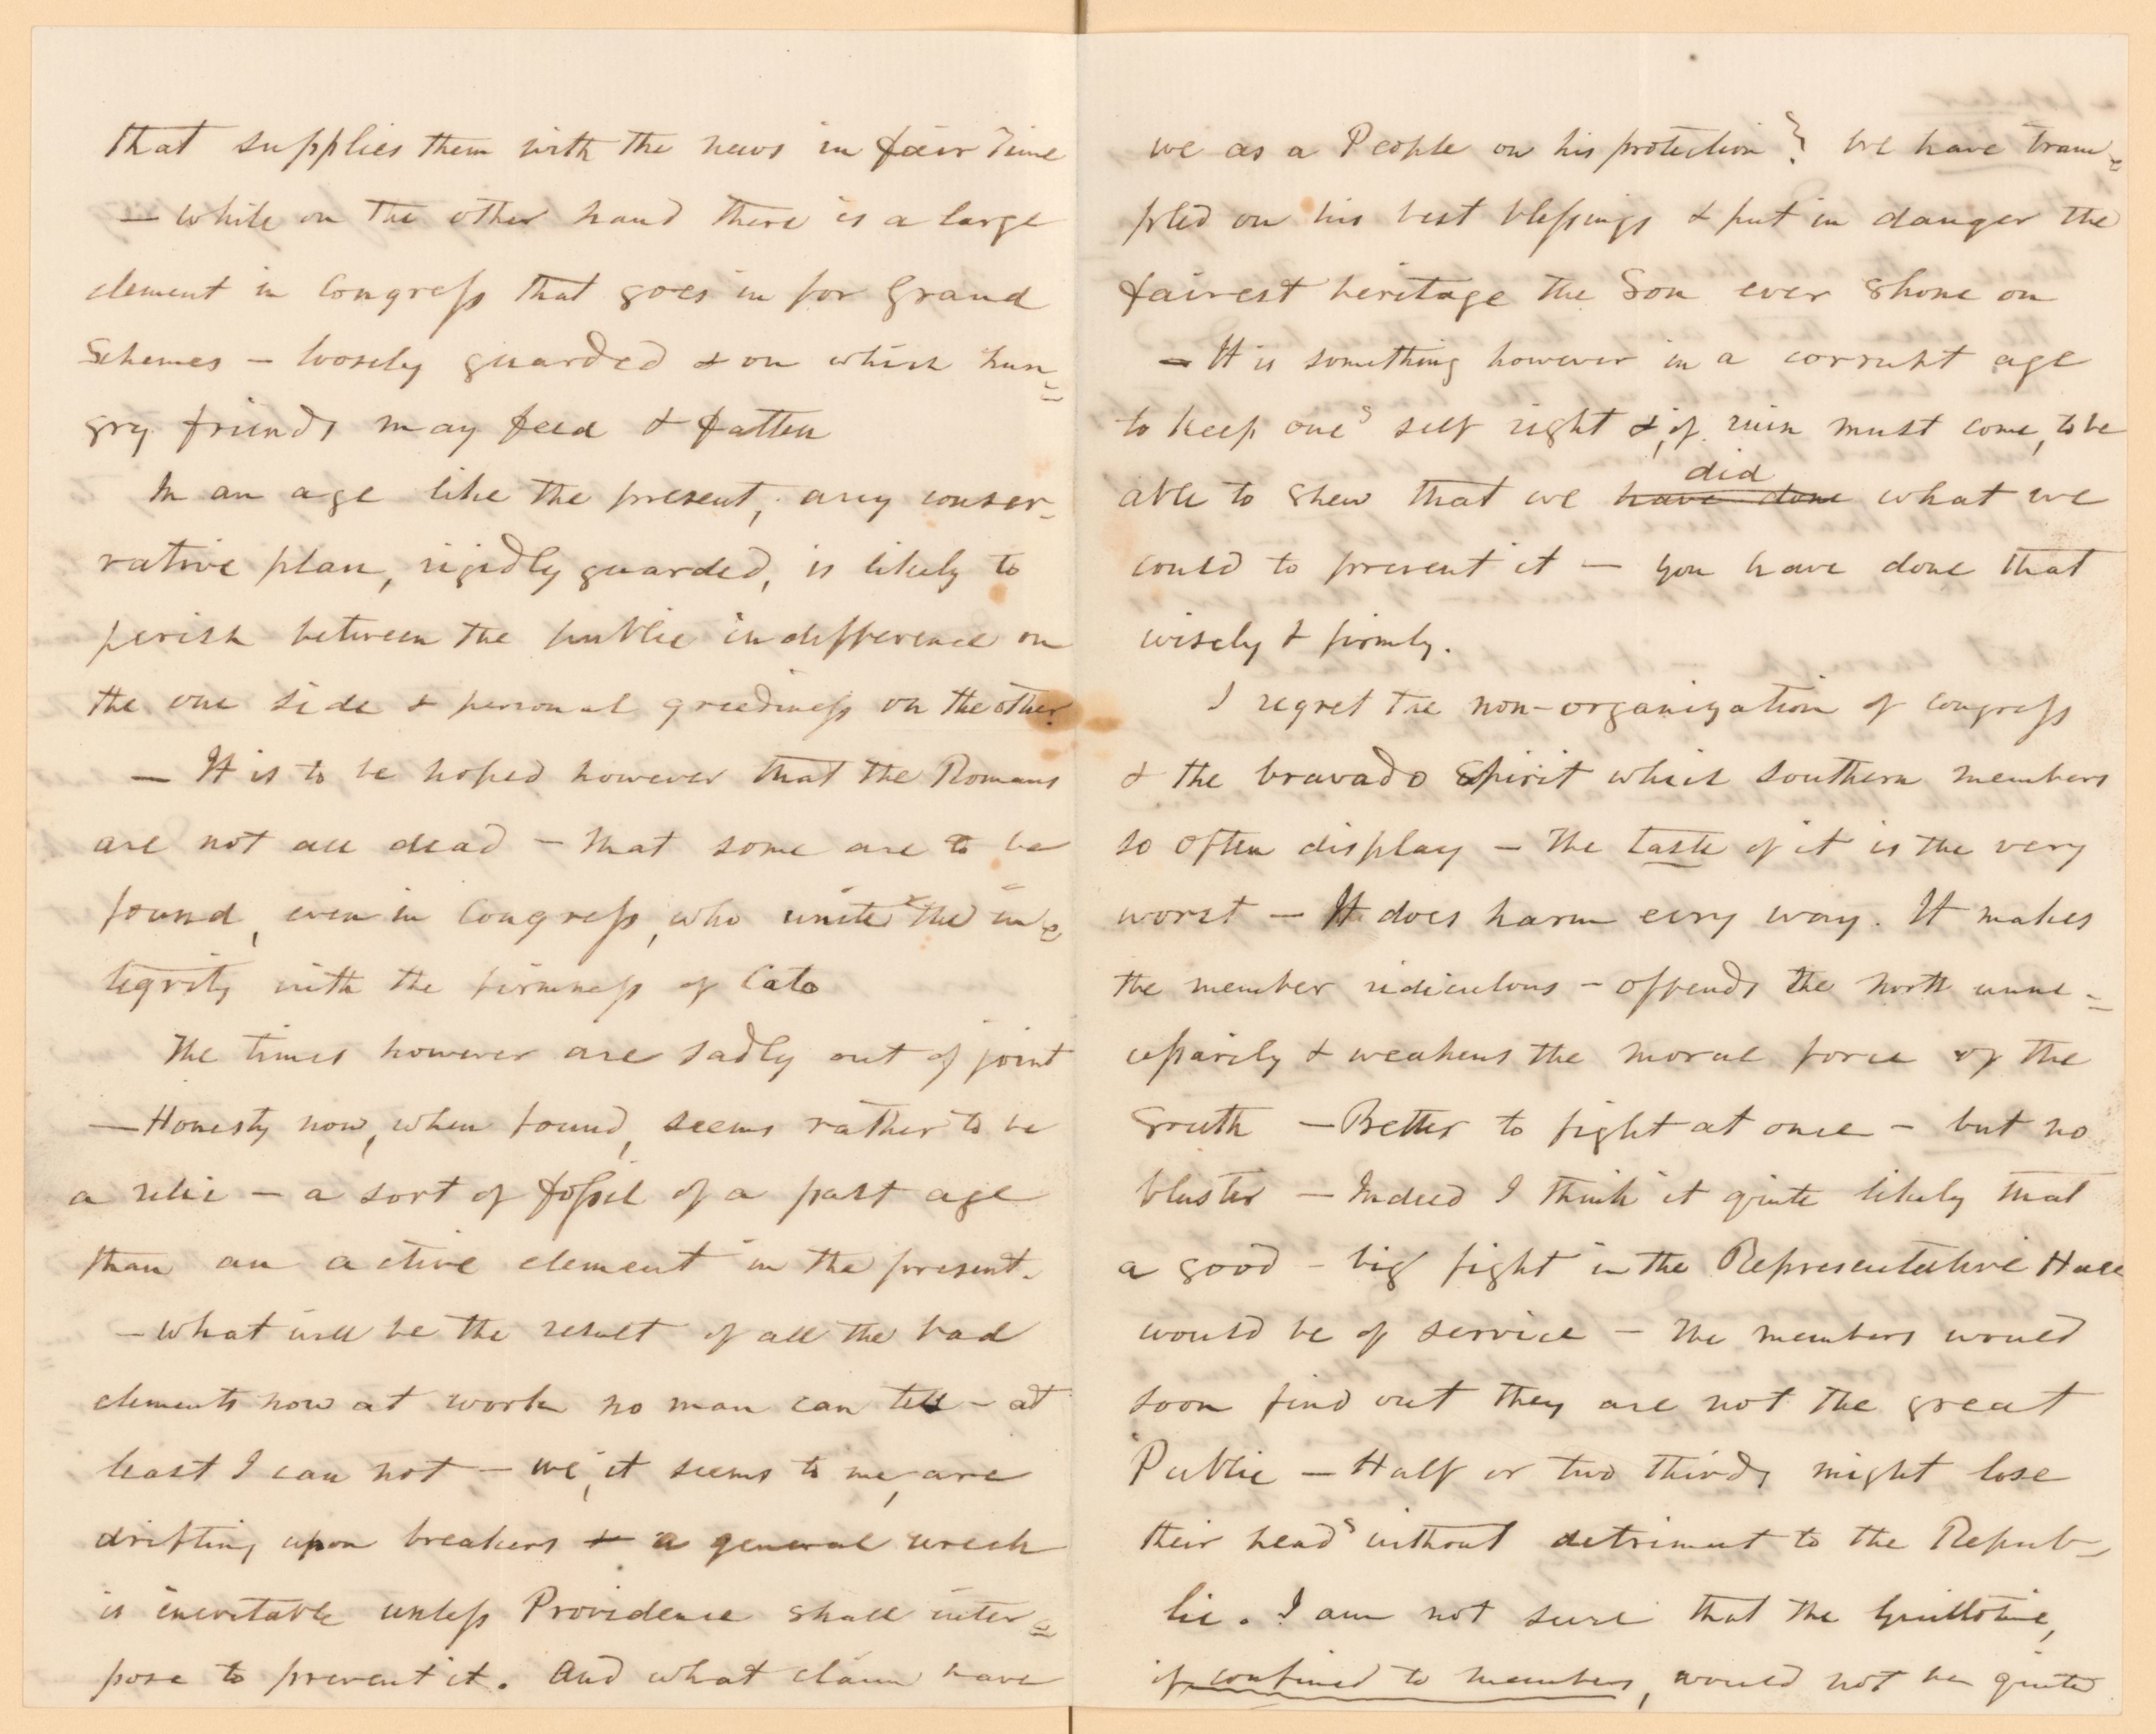 that supplies them with the news in fair Time
— while on the other hand there is a large
element in Congress that goes in for Grand
Schemes – loosely guarded & on which hun=
gry friends may feed & fatten
In an age like the present, any conser-
vative plan, rigidly guarded, is likely to
perish between the public indifference on
the one side & personal greediness on the other
— It is to be hoped however that the Romans
are not all dead – that some are to be
found, even in Congress, who unite the in=
tegrity with the firmness of Cato
The times however are sadly out of joint
— Honesty now, when found, seems rather to be
a relic – a sort of fossil of a past age
than an active element in the present.
– what will be the result of all the bad
elements now at work no man can tell – at
least I can not – we, it seems to me, are
drifting upon breakers & a general wreck
is inevitable unless Providence shall inter=
pose to prevent it. And what claim have
we as a People on his protection? We have tram=
pled on his best blessings & put in danger the
fairest heritage the Son ever shone on
– It is something however in a corrupt age
to keep one's self right &, if ruin must come, to be
able to shew that we have done did what we
could to prevent it — you have done that
wisely & firmly.
I regret the non-organization of congress
& the bravado spirit which southern members
so often display – The taste of it is the very
worst – It does harm evry way. It makes
the member ridiculous – offends the North unne=
cessarily & weakens the moral force of the
South – Better to fight at once – but no
bluster – Indeed I think it quite likely that
a good – big fight in the Representative Hall
would be of service – The members would
soon find out they are not the great
Public – Half or two thirds might lose
their heads without detriment to the Repub-
lic. I am not sure that the Guillotine,
if confined to members, would not be quite